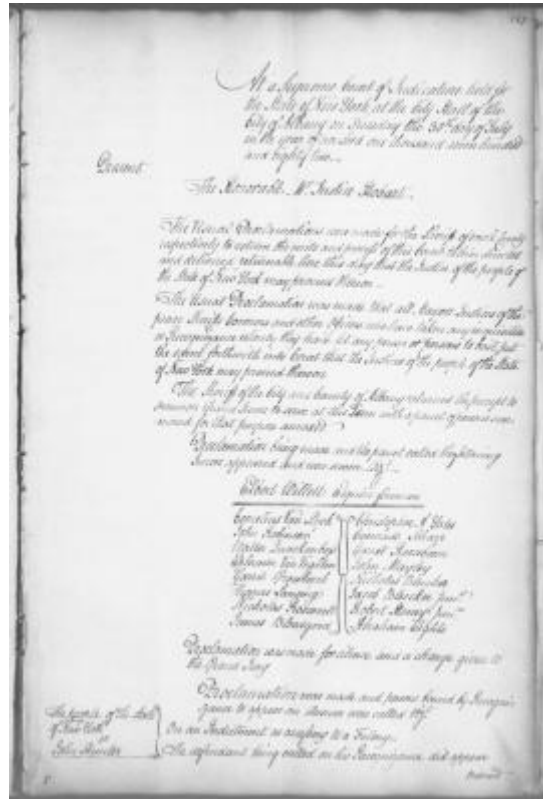 At a Supreme Court of Judicature held for
the State of New York at the City Hall of the
City of Albany on Tuesday the 30th day of July
in the year of our Lord one thousand seven hundred
and eighty two
Present
The Honorable Mr. Justice Hobart.
The Usual Proclamations were made for the Sheriff of each County
respectively to return the writs and process of this Court to him directed
and delivered returnable here this day that the Justices of the people of
the State of New York may proceed thereon
The Usual Proclamation was made that all Justices of the
peace Sheriffs Coroners and other Officers who have taken any
or Recognizance whereby they have let any person or persons to bail put
the same forthwith into Court that the Justices of the people of the State
of New York may proceed thereon
The Sheriff of the City and County of Albany returned the precept to
summon Grand Jurors to serve at this Term with a panel of
for that purpose annexed
Proclamation being made and the panel called the following
Jurors appeared and were sworn
Elbert Willett Esquire foreman
Cornelius Van
John Robinson
Walter
Ephraim Van Veghten
Gerrit
Thomas Lansing
Nicholas
James
Christopher A Yates
Gerrit
John
Nicholas Bleecker
Jacob Bleecker junr
Robert Henry junr
Abraham Eights
Proclamation was made for silence and a charge given to
the Grand Jury
Proclamation was made and persons bound by Recogni-
zance to appear
The people of the State
of New York
vs
John
On an Indictment
to a Felony
The defendant being called on his Recognizance did appear